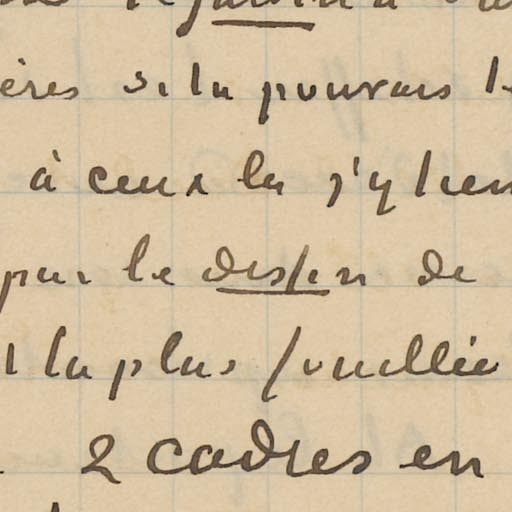 ères si tu pouvais
à ceux la j'y tien
par le dessin de
la plus fouillée
2 cadres en